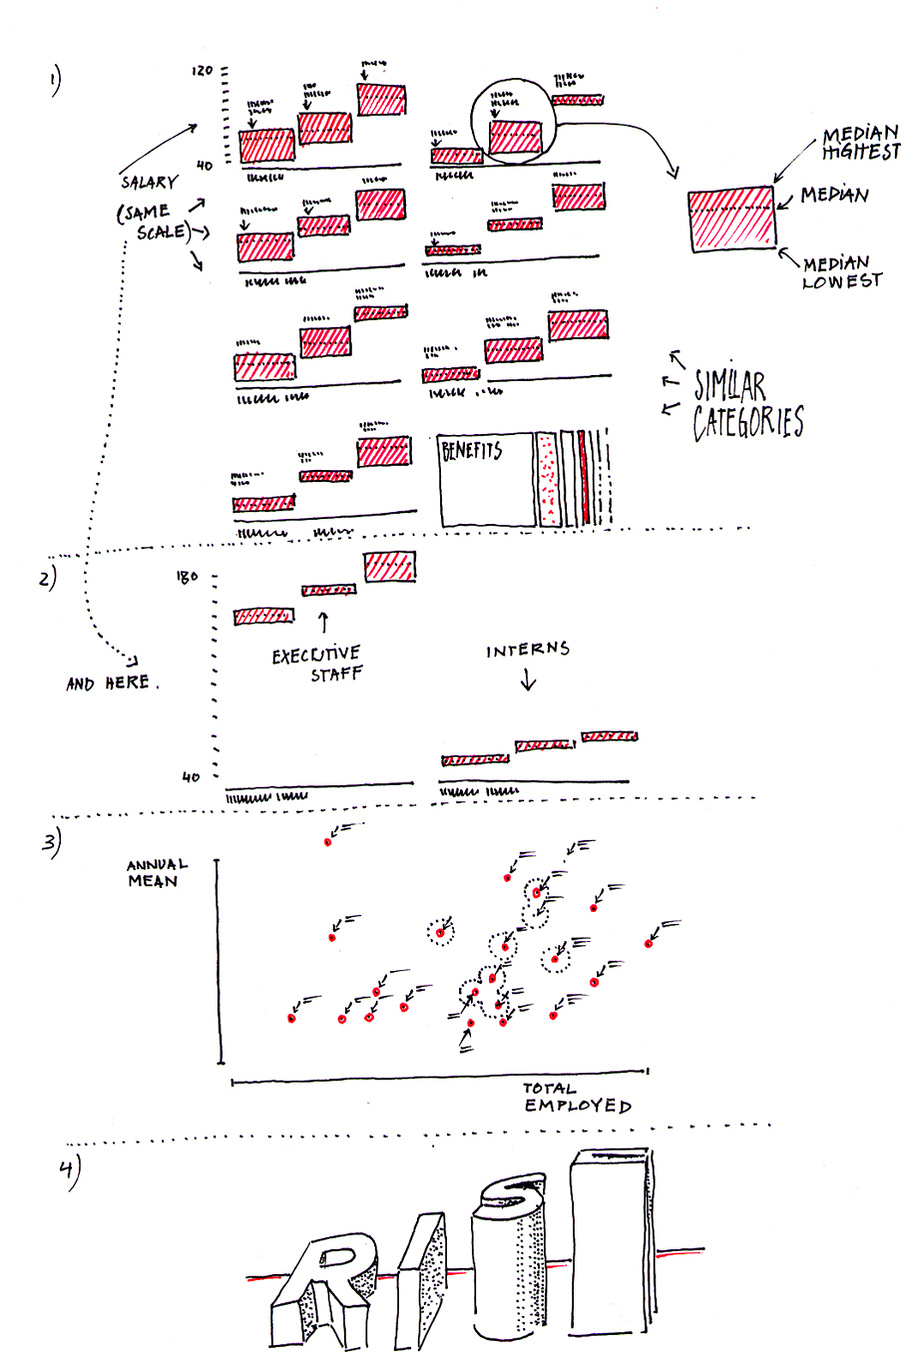 1)
120
40
SALARY
(SAME
SCALE)
MEDIAN
HIGHEST
MEDIAN
MEDIAN
LOWEST
SIMILAR
CATEGORIES
BENEFITS
2)
180
EXECUTIVE
STAFF
INTERNS
AND HERE.
40
3)
ANNUAL
MEAN
TOTAL
EMPLOYED
4)
RISE